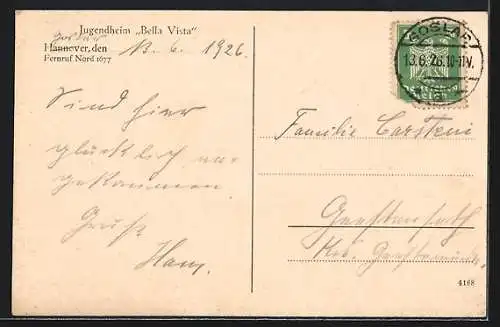 Jugendheim „Bella Vista“
Goslar
Hannover, den 13. 6. 1926.
Fernruf Nord 1677
Sind hier
glücklich an-
gekommen.
Gruß
Hans.
GOSLAR
13.6.26.10-11V.
Familie Carstens
Geestenseth
Krs. Geestemünde
4188